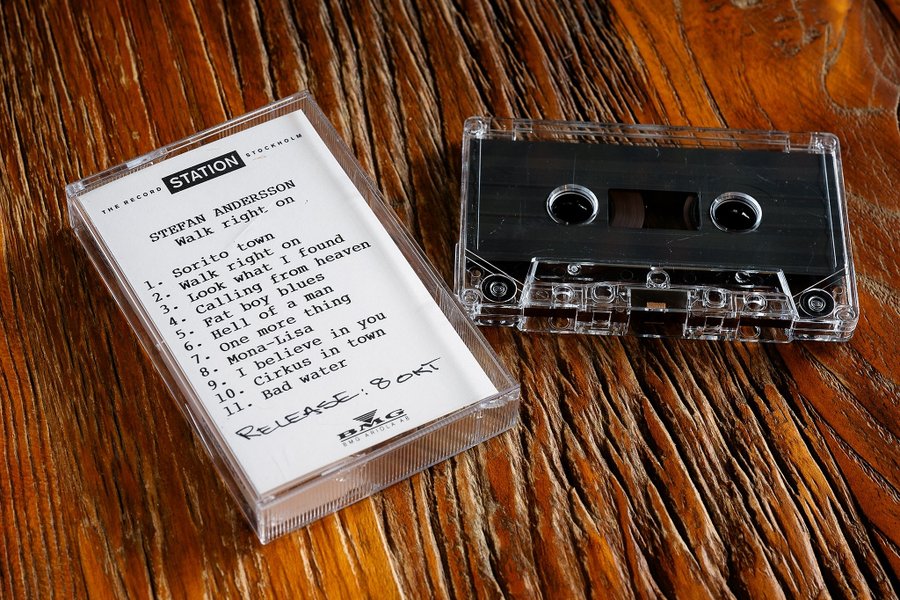 THE RECORD STATION STOCKHOLM
STEFAN ANDERSSON
Walk right on
1. Sorito town
2. Walk right on
3. Look what I found
4. Calling from heaven
5. Fat boy blues
6. Hell of a man
7. One more thing
8. Mona-Lisa
9. I believe in you
10. Cirkus in town
11. Bad water
RELEASE: 8 OKT
BMG
BMG ARIOLA AB